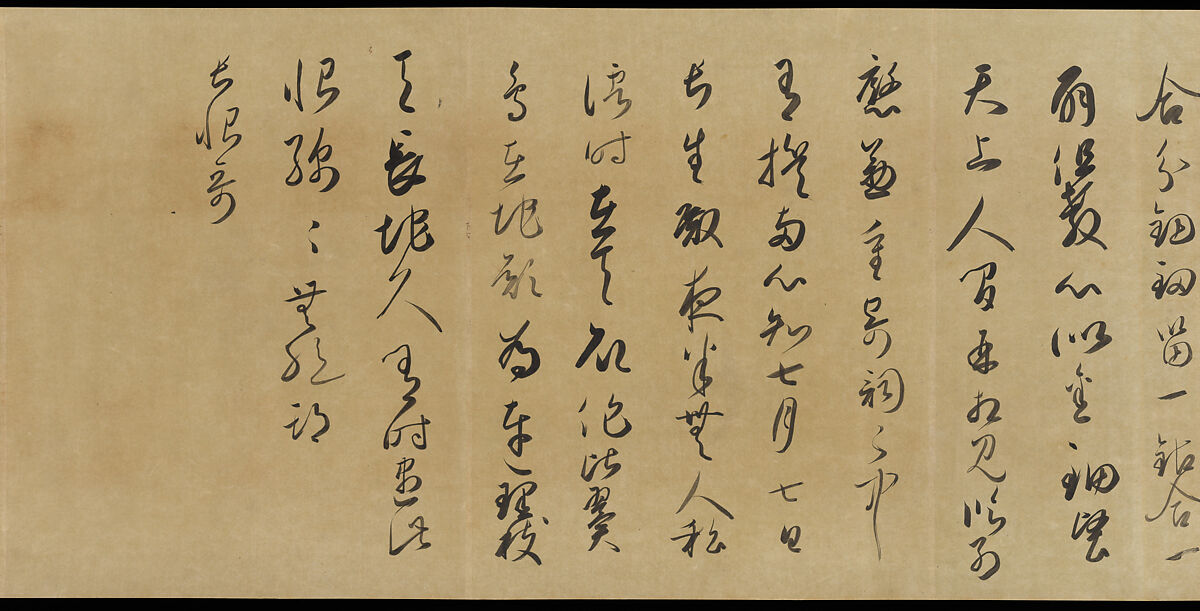 合分鈿釵留一鈷合一
扇但教心似金鈿堅
天上人間再相見臨別
慇懃重寄詞々中
有誓兩心知七月七日
長生殿夜半無人私
語時在天願作比翼
鳥在地願為連理枝
天長地久有時盡此
恨綿々無絕期
長恨哥